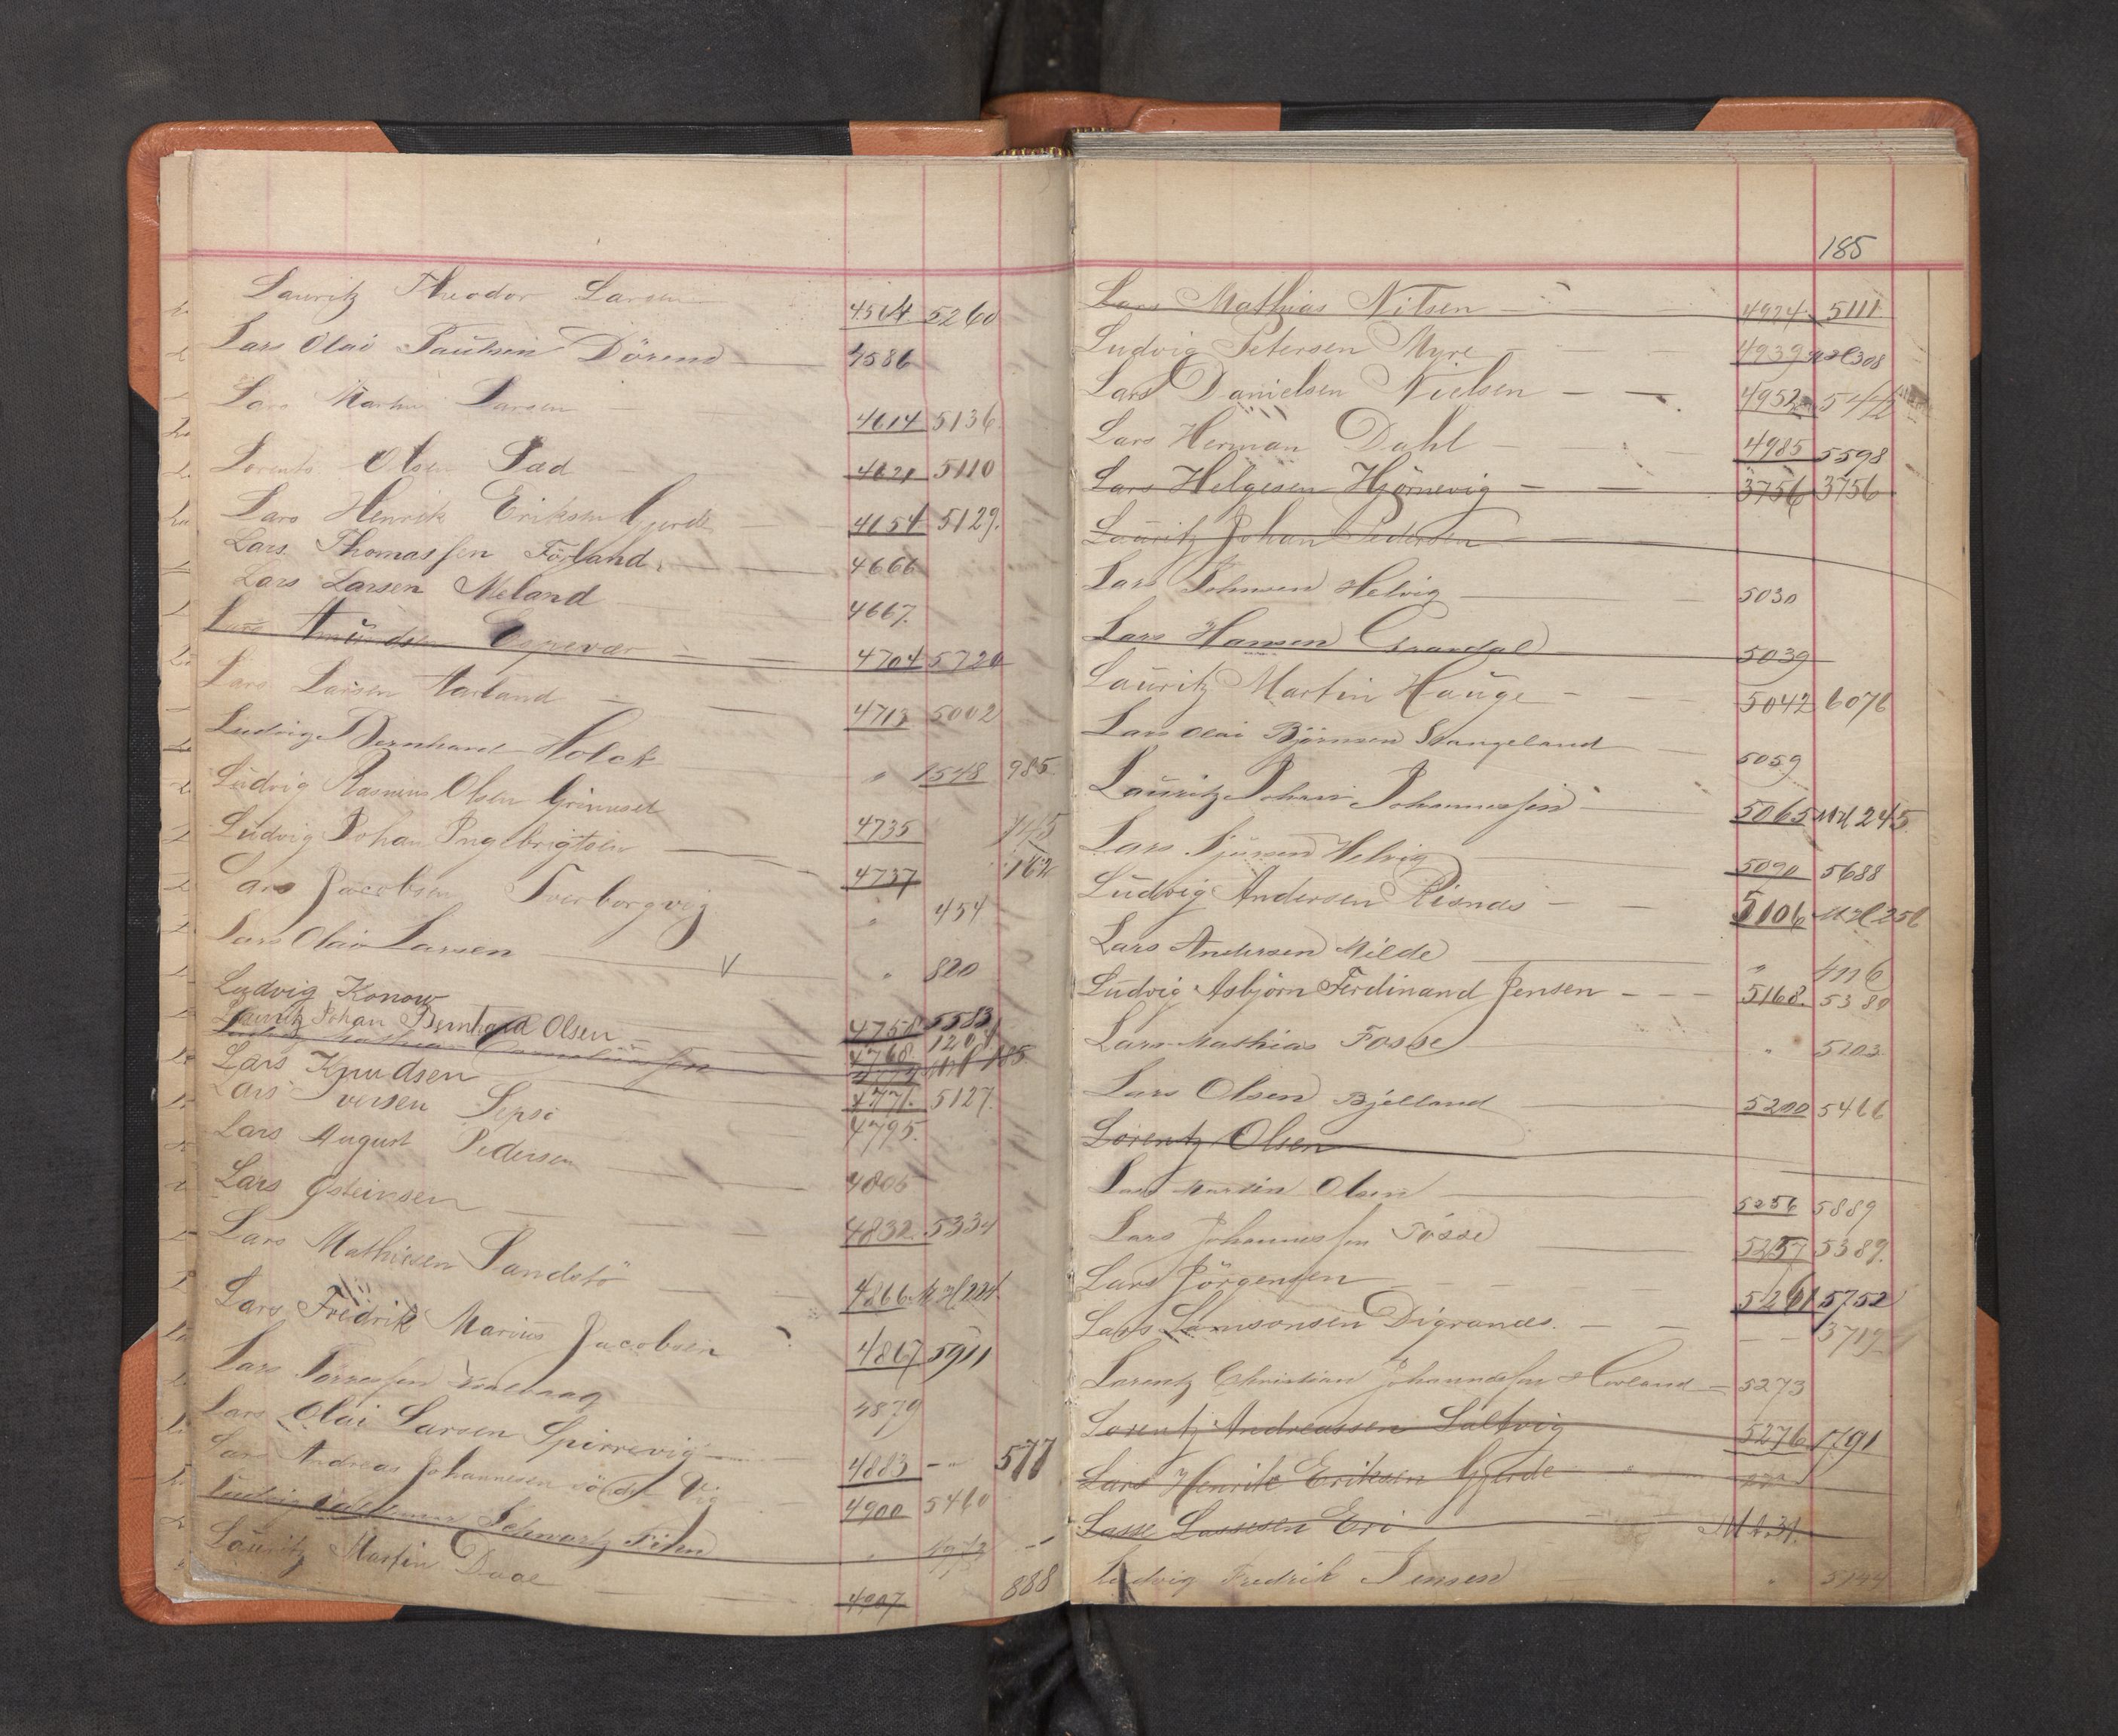 Lauritz Theodor Larsen 4564 5260
Lars Olai Paulsen Dörend 4586
Lars Martin Larsen 4614 5136
Lorents Olsen Lad 4621 5110
Lars Henrik Eriksen Gjerde 4654 5129.
Lars Thomassen Förland. 4666
Lars Larsen Meland 4667.
Lars Amundsen Espevær 4704 5720
Lars Larsen Aarland 4713 5002
Ludvig Bernhard Holck " 1548 985
Ludvig Rasmus Olsen Grimset 4735
Ludvig Johan Ingebrigtsen 4737 162
Lars Jacobsen Tverborgvig " 454
Lars Olai Larsen V " 820
Ludvig Konow 4758 5583
Lauritz Johan Bernhard Olsen 4768
185
Lars Knudsen 4771. 5127.
Lars Iversen Sepsö 4795.
Lars August Pedersen 4805
Lars Östeinsen 4832 5334
Lars Mathiesen Sandstö 4866
Lars Fredrik Marius Jacobsen 4867 5911
Lars 4879
Lars Olai Larsen Spirrevig 4883 - " 577
Lars Andreas Johannesen Vig 4900 5460
Ludvig Schwartz
Lauritz Martin Daae 4907 888
185
Lars Mathias Nilsen 4924 5111
Ludvig Petersen Myre 4939 308
Lars Danielsen Nielsen 4952 5442
Lars Herman Dahl 4985 5598
Lars Helgesen Hjörnevig 3756 3756
Lauritz Johan Pedersen
Lars Johnsen Helvig 5030
Lars Hansen Graardal 5039
Lauritz Martin Hauge 5042 6076
Lars Olai Björnsen Stangeland 5059
Lauritz Johan Johannessen 5065 245
Lars Sjursen Helvig 5090 5688
Ludvig Andersen Risnæs 5106 256
Lars Andersen Milde "
Ludvig Asbjörn Ferdinand Jensen 5168. 5380
Lars Mathias Fosse " 5203
Lars Olsen Bjelland 5200 5466
Lorentz Olsen
Lars Martin Olsen 5256 5889
Lars Johannessen Fosse 5257 5389.
Lars Jörgensen 5261 5752
Lars Samsonsen Digranæs. 3719
Lorentz Christian Johannessen Hovland 5273
Lorentz Andreassen Saltvig 5276 1791
Lars Henrik Eriksen Gjerde
Lasse Lassesen Eri
Ludvig Fredrik Jensen " 5144